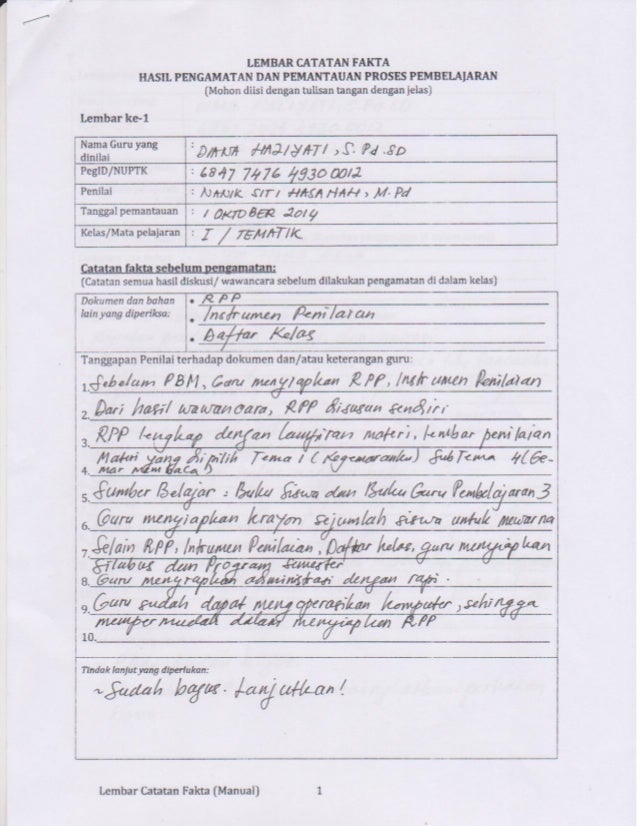 LEMBAR CATATAN FAKTA
HASIL PENGAMATAN DAN PEMANTAUAN PROSES PEMBELAJARAN
(Mohon diisi dengan tulisan tangan dengan jelas)
Lembar ke-1
Nama Guru yang dinilai : DIANA HAZIYATI, S.Pd.SD
PegID/NUPTK : 6847 7476 4930 0012
Penilai : NANIK SITI HASANAH, M.Pd
Tanggal pemantauan : 1 OKTOBER 2014
Kelas/Mata pelajaran : I / TEMATIK
Catatan fakta sebelum pengamatan:
(Catatan semua hasil diskusi/ wawancara sebelum dilakukan pengamatan di dalam kelas)
Dokumen dan bahan lain yang diperiksa:
• RPP
• Instrumen Penilaian
• Daftar Kelas
Tanggapan Penilai terhadap dokumen dan/atau keterangan guru:
1. Sebelum PBM, Guru menyiapkan RPP, Instrumen Penilaian
2. Dari hasil wawancara, RPP disusun sendiri
3. RPP lengkap dengan lampiran materi, lembar penilaian
Materi yang dipilih Tema 1 (Kegemaranku) SubTema 4 (Ge-
4. mar Membaca)
5. Sumber Belajar : Buku Siswa dan Buku Guru Pembelajaran 3
6. Guru menyiapkan krayon sejumlah siswa untuk mewarna
7. Selain RPP, Intrumen Penilaian, Daftar kelas, guru menyiapkan
Silabus dan Program Semester
8. Guru menyiapkan administrasi dengan rapi.
9. Guru sudah dapat mengoperasikan komputer, sehingga
mempermudah dalam menyiapkan RPP
10.
Tindak lanjut yang diperlukan:
~ Sudah bagus. Lanjutkan!
Lembar Catatan Fakta (Manual) 1